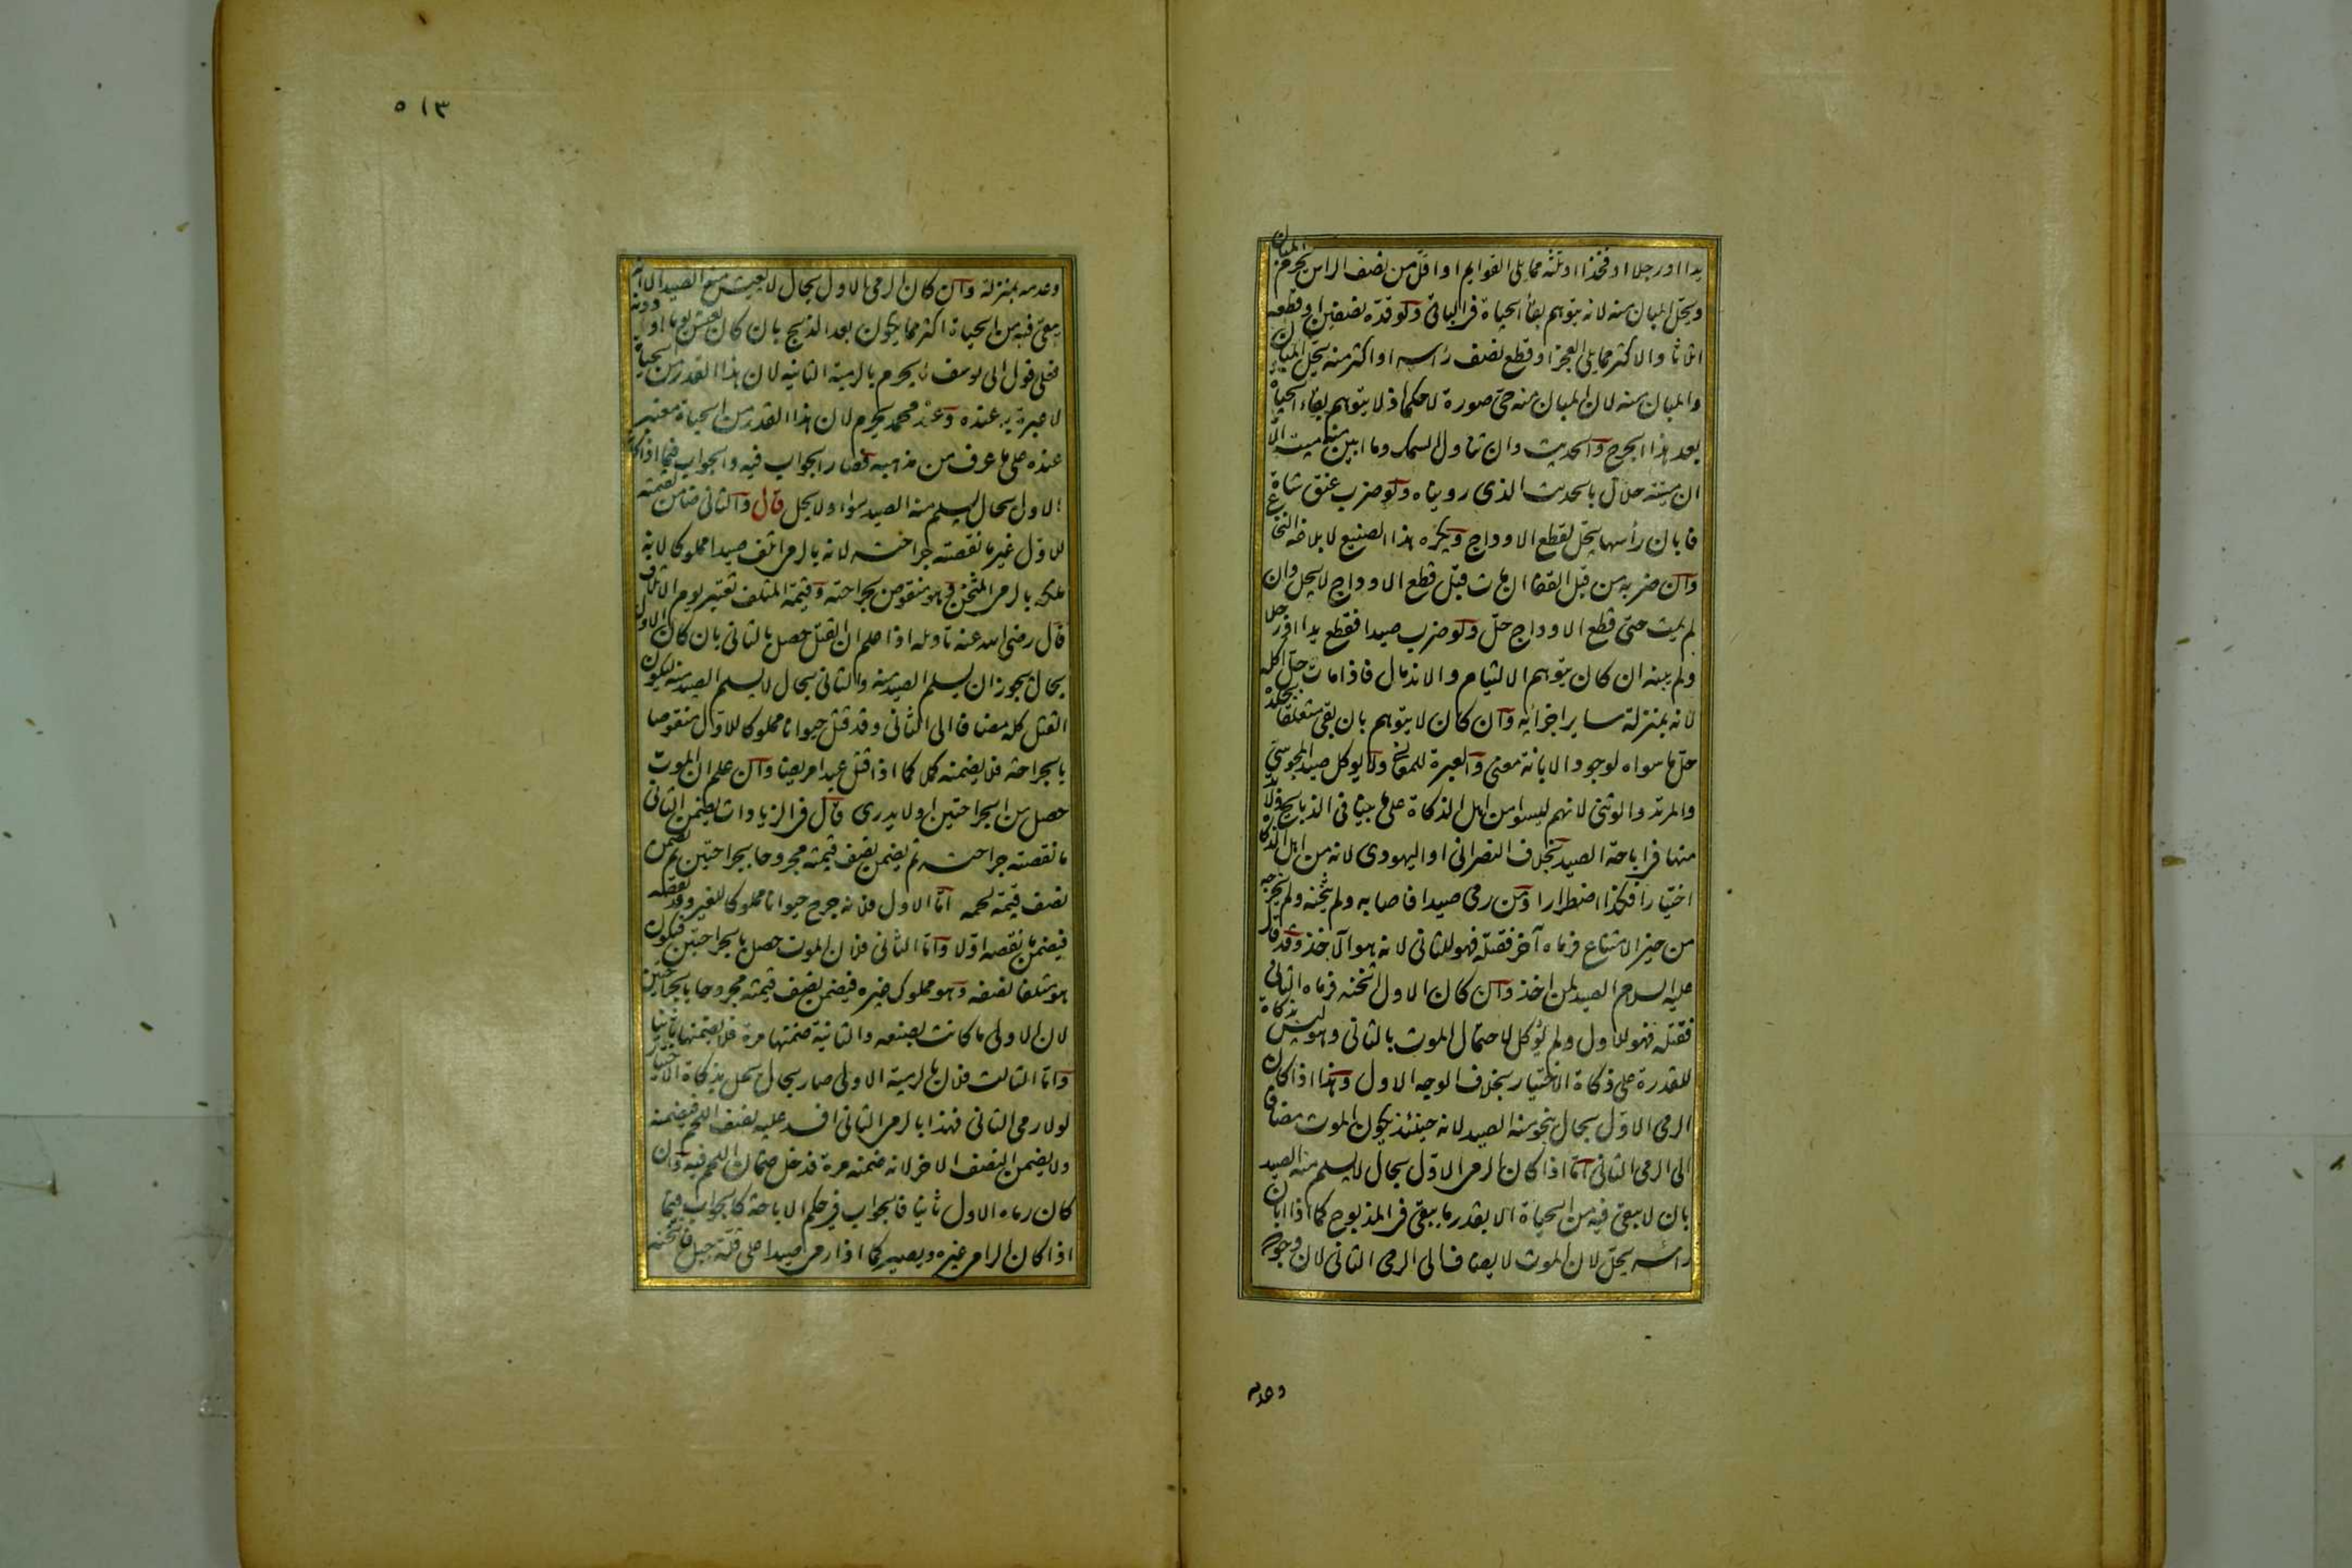 يدا او رجلا او فخذا او ثلثه مما يلى القوايم او اقل من نصف الراس يحرم المبان
ويحل المبان منه لانه يتوهم بقاء الحياة فى الباقى ولو قده بنصفين او قطعه
اثلاثا والاكثر مما يلى العجز او قطع نصف رأسه او اكثر منه يحل المبان
والمبان منه لان المبان منه حى صورة لا حكما اذ لا يتوهم بقاء الحياة
بعد هذا الجرح والحديث وان تناول السمك وما ابين منه ميت الا
ان ميتته حلال بالحديث الذى رويناه ولو ضرب عنق شاة
فابان رأسها يحل لقطع الاوداج ويكره هذا الصنيع لابلاغه النخاع
وان ضربه من قبل القفا ان مات قبل قطع الاوداج لا يحل وان
لم يمت حتى قطع الاوداج حل ولو ضرب صيدا فقطع يدا او رجلا
ولم يبنه ان كان يتوهم الالتيام والاندمال فاذا مات حل اكله
لانه بمنزلة ساير اجزائه وان كان لا يتوهم بان بقى متعلقا بجلده
حل ما سواه لوجود الابانة معنى والعبرة للمعانى ولا يوكل صيد المجوسى
والمرتد والوثنى لانهم ليسوا من اهل الذكاة على ما بينا فى الذبايح ولا بد
منها فى اباحة الصيد بخلاف النصرانى او اليهودى لانه من اهل الذكاة
اختيارا فكذا اضطرارا ومن رمى صيدا فاصابه ولم يثخنه ولم يخرجه
من حيز الامتناع فرماه آخر فقتله فهو للثانى لانه هو الآخذ وقد قال
عليه السلام الصيد لمن اخذ وان كان الاول اثخنه فرماه الثانى
فقتله فهو للاول ولم يؤكل لاحتمال الموت بالثانى وهو ليس بذكاة
للقدرة على ذكاة الاختيار بخلاف الوجه الاول وهذا اذا كان
الرمى الاول بحال ينجو منه الصيد لانه حينئذ يكون الموت مضافا
الى الرمى الثانى اما اذا كان الرمى الاول بحال لا يسلم منه الصيد
بان لا يبقى فيه من الحياة الا بقدر ما يبقى فى المذبوح كما اذا ابان
رأسه يحل لان الموت لا يضاف الى الرمى الثانى لان وجوده
وعدمه
٥١٣
وعدمه بمنزلة وان كان الرمى الاول بحال لا يعيش منه الصيد الا انه
يبقى فيه من الحياة اكثر مما يكون بعد الذبح بان كان يعيش يوما او دونه
فعلى قول ابى يوسف لا يحرم بالرمية الثانية لان هذا القدر من الحياة
لا عبرة به عنده وعند محمد يحرم لان هذا القدر من الحياة معتبر
عنده على ما عرف من مذهبه فصار الجواب فيه والجواب فيما اذا كان
الاول بحال يسلم منه الصيد سواء ولا يحل قال والثانى ضامن لقيمته
للاول غير ما نقصته جراحته لانه بالرمى اتلف صيدا مملوكا لانه
ملكه بالرمى المثخن وهو منقوص بجراحته وقيمة المتلف تعتبر يوم الاتلاف
قال رضى الله عنه تاويله اذا علم ان القتل حصل بالثانى بان كان الاول
بحال يجوز ان يسلم الصيد منه والثانى بحال لا يسلم الصيد منه ليكون
القتل كله مضافا الى الثانى وقد قتل حيوانا مملوكا للاول منقوصا
بالجراحة فلا يضمنه كملا كما اذا قتل عبدا مريضا وان علم ان الموت
حصل من الجراحتين او لا يدرى قال فى الزيادات يضمن الثانى
ما نقصته جراحته ثم يضمن نصف قيمته مجروحا بجراحتين ثم يضمن
نصف قيمة لحمه اما الاول فلانه جرح حيوانا مملوكا للغير وقد نقصه
فيضمن ما نقصه اولا واما الثانى فلان الموت حصل بالجراحتين فيكون
هو متلفا نصفه وهو مملوك غيره فيضمن نصف قيمته مجروحا بالجراحتين
لان الاولى ما كانت بصنعه والثانية ضمنها مرة فلا يضمنها ثانيا
واما الثالث فلان بالرمية الاولى صار بحال يحل بذكاة الاختيار
لولا رمى الثانى فهذا بالرمى الثانى افسد عليه نصف اللحم فيضمنه
ولا يضمن النصف الاخر لانه ضمنه مرة فدخل ضمان اللحم فيه وان
كان رماه الاول ثانيا فالجواب فى حكم الاباحة كالجواب فيما
اذا كان الرامى غيره ويصير كما اذا رمى صيدا على قلة جبل فاثخنه